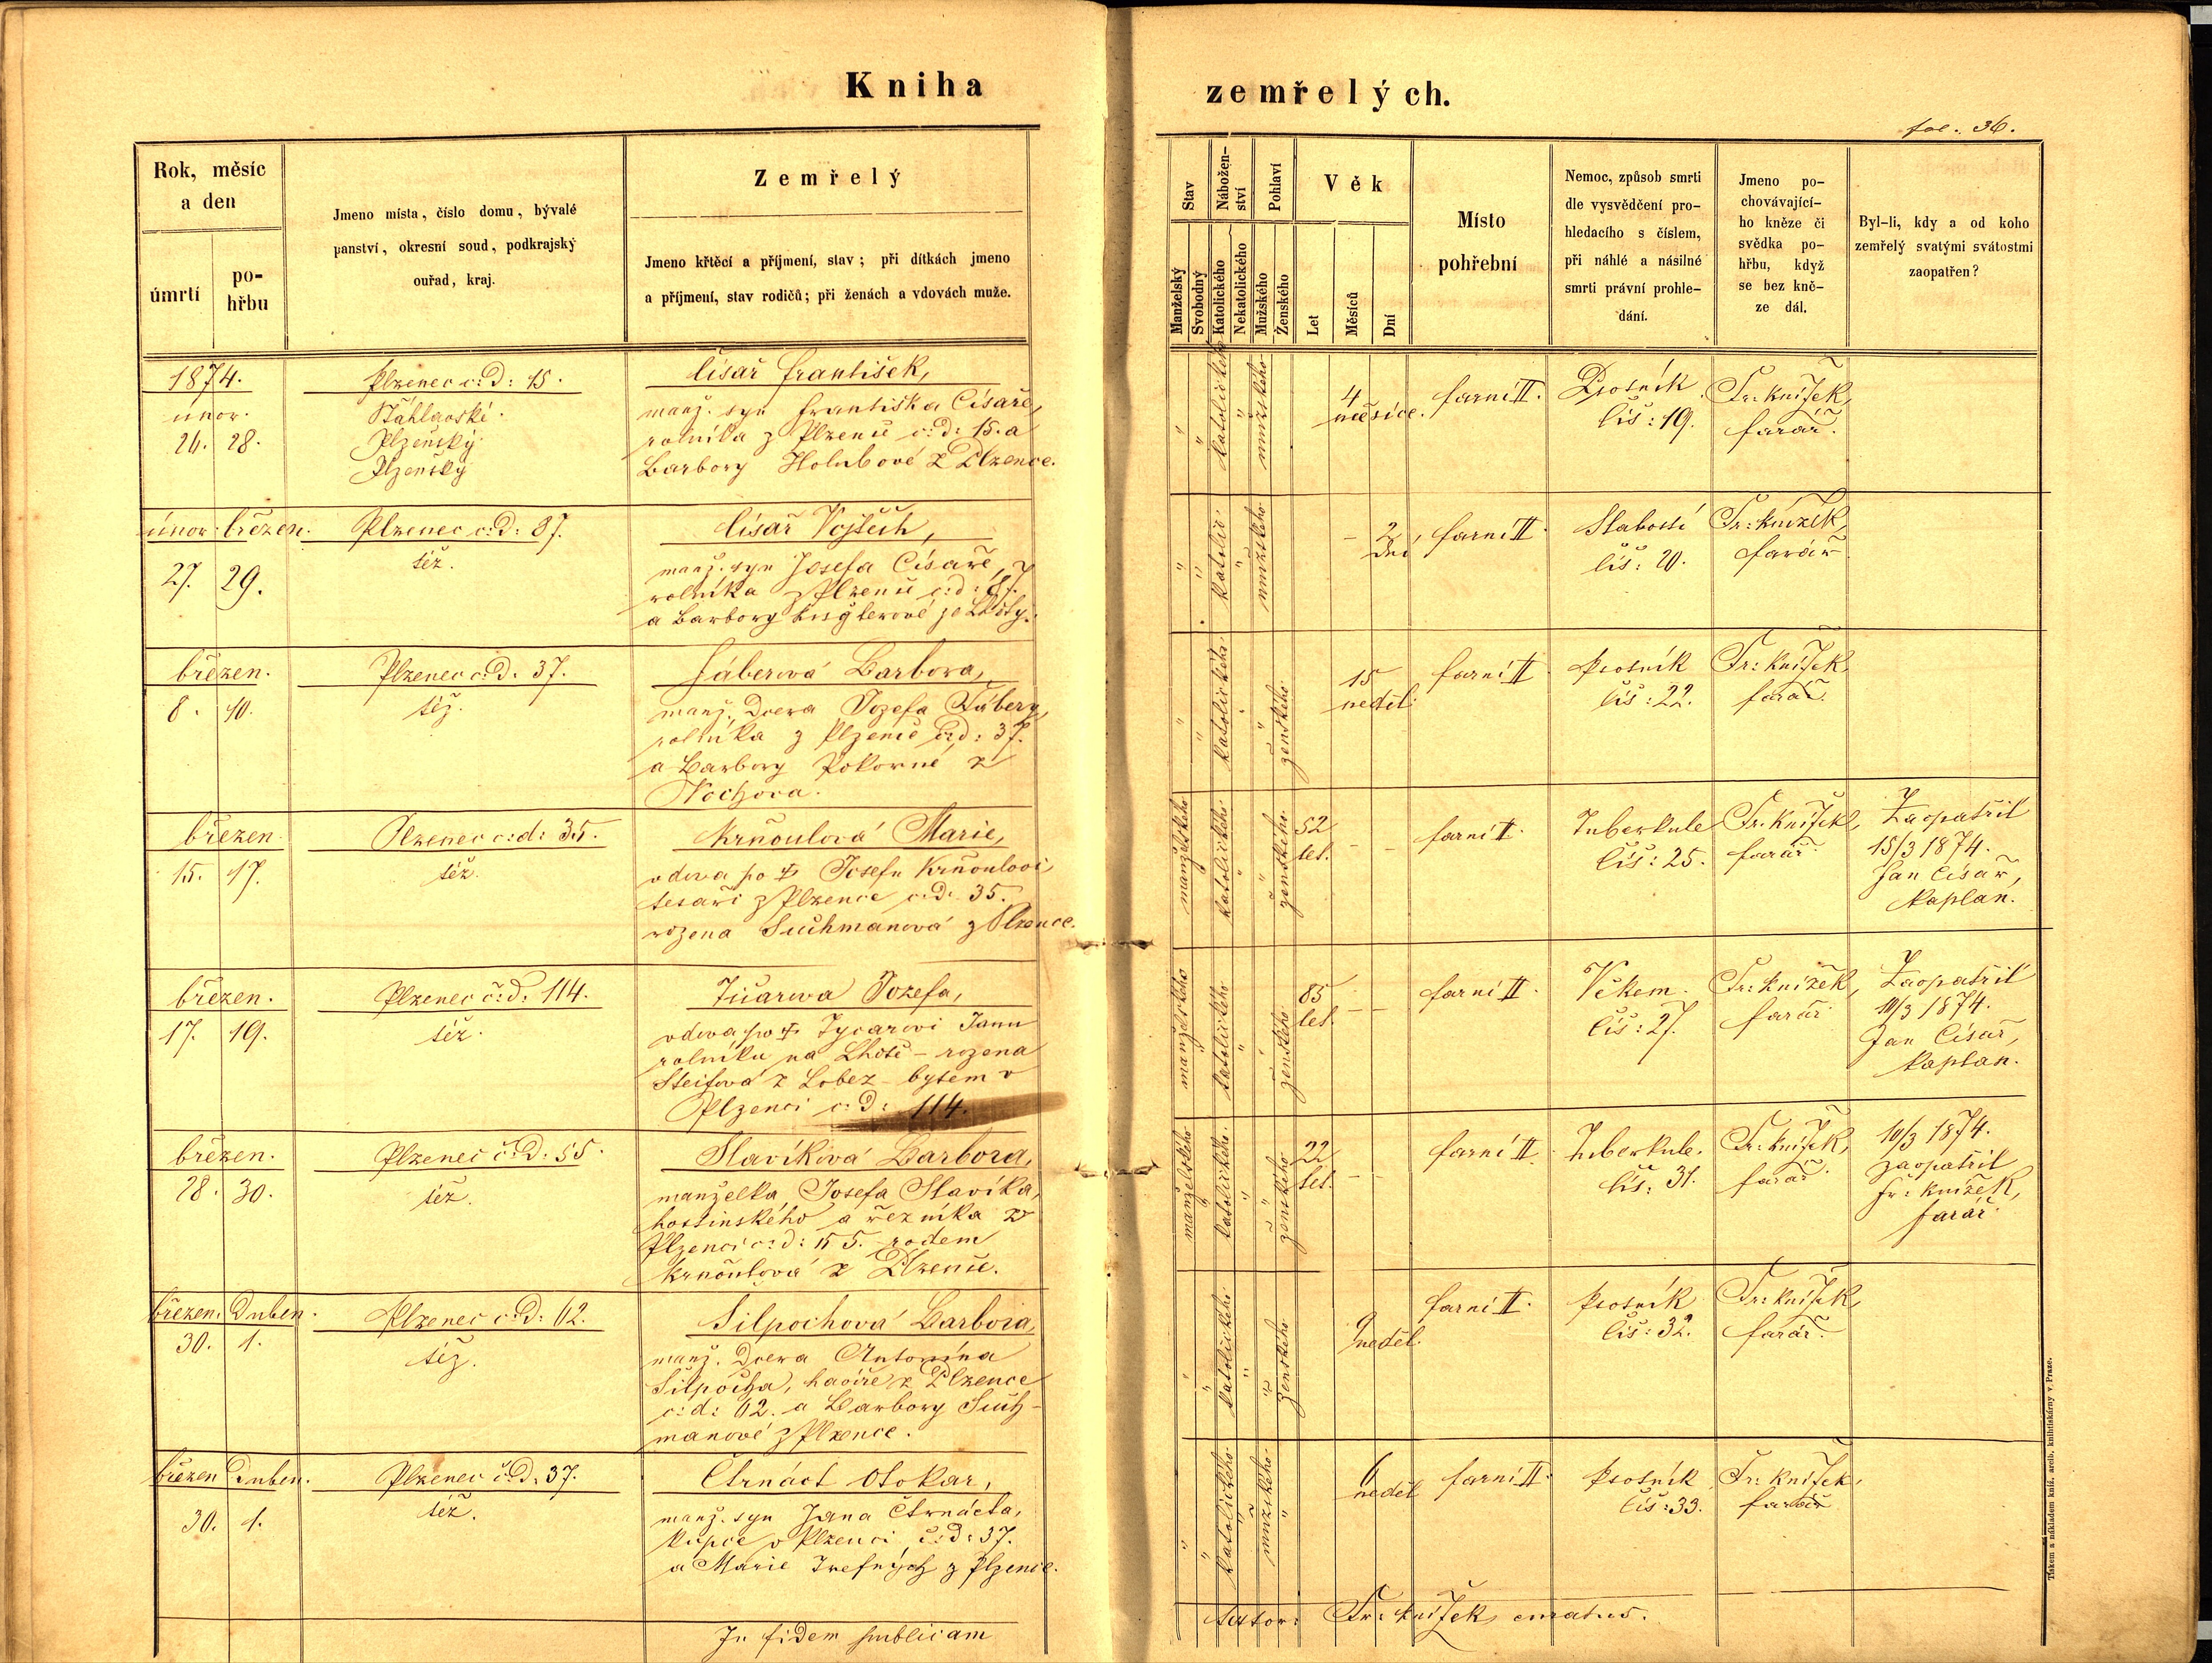 Kniha zemřelých.
fol. 36.
Rok, měsíc
a den
úmrtí
po-
hřbu
Jmeno místa, číslo domu, bývalé
panství, okresní soud, podkrajský
ouřad, kraj.
Zemřelý
Jmeno křtěcí a příjmení, stav; při dítkách jmeno
a příjmení, stav rodičů; při ženách a vdovách muže.
Stav
Manželský
Svobodný
Nábožen-
ství
Katolického
Nekatolického
Pohlaví
Mužského
Ženského
Věk
Let
Měsíců
Dní
Místo
pohřební
Nemoc, způsob smrti
dle vysvědčení pro-
hledacího s číslem,
při náhlé a násilné
smrti právní prohle-
dání.
Jmeno po-
chovávající-
ho kněze či
svědka po-
hřbu, když
se bez kně-
ze dál.
Byl-li, kdy a od koho
zemřelý svatými svátostmi
zaopatřen?
1874.
únor.
26. 28.
Plzenec č: d: 15.
Štáhlavské.
Plzeňský
Plzeňský
Císař František,
manž. syn Františka Císaře,
rolníka z Plzence č: d: 15. a
Barbory Holubové z Plzence.
katolického
mužského
4
měsíce.
farní II.
Psotník
čís: 19.
Fr: Knížek,
farář.
únor. březen.
27. 29.
Plzenec č: d: 87.
též.
Císař Vojtěch,
manž. syn Josefa Císaře,
rolníka z Plzence č: d: 87.
a Barbory
katolic.
mužského
2
dni
farní II.
Slabostí
čís: 20.
Fr: Knížek,
farář
březen.
8. 10.
Plzenec č: d. 37.
též.
Fáberová Barbora,
manž. dcera Jozefa Fábery,
rolníka z Plzence č: d: 37.
a Barbory Pokorné z
Nochova.
katolického
ženského
15
neděl.
farní II
Psotník
čís: 22.
Fr: Knížek,
farář.
březen.
15. 17.
Plzenec č: d: 35.
též.
Krňoulová Marie,
vdova po † Josefu Krňoulovi
tesaři z Plzence č: d. 35.
rozená Suchmanová z Plzence.
manželského
katolického
ženského
52
let.
farní II.
Tuberkule
čís: 25.
Fr. Knížek,
farář.
Zaopatřil
15/3 1874.
Jan Císař,
kaplan.
březen.
17. 19.
Plzenec č: d: 114.
též.
Jozefa,
vdova po † Janu
rolníku na Lhotě – rozená
z Lobez – bytem v
Plzenci č: d: 114.
manželského
katolického
ženského
85
let.
farní II.
Věkem.
čís: 27.
Fr: Knížek,
farář.
Zaopatřil
11/3 1874.
Jan Císař,
kaplan.
březen.
28. 30.
Plzenec č: d: 55.
též.
Slavíková Barbora,
manželka Josefa Slavíka,
hostinského a řezníka v
Plzenci č: d: 55. rodem
Krňoulová z Plzence.
manželského
katolického
ženského
22
let.
farní II
Tuberkule.
čís: 31.
Fr: Knížek,
farář.
10/3 1874.
zaopatřil
Fr: Knížek,
farář.
březen. Duben.
30. 1.
Plzenec č: d: 62.
též.
Silpochová Barbora,
manž. dcera Antonína
Silpocha, havíře z Plzence
č: d: 62. a Barbory Such-
manové z Plzence.
katolického
ženského
9
neděl.
farní II.
Psotník
čís: 32.
Fr: Knížek,
farář.
březen Duben.
30. 1.
Plzenec č: d. 37.
též.
Čtrnáct Otokar,
manž. syn Jana Čtrnácta,
kupce v Plzenci, č: d: 37.
a Marie z Plzence.
katolického
mužského
6
neděl
farní II.
Psotník
čís: 33.
Fr: Knížek,
farář
In fidem publicam
Autor: Fr: Knížek, curatus.
Tiskem a nákladem kníž. arcib. knihtiskárny v Praze.